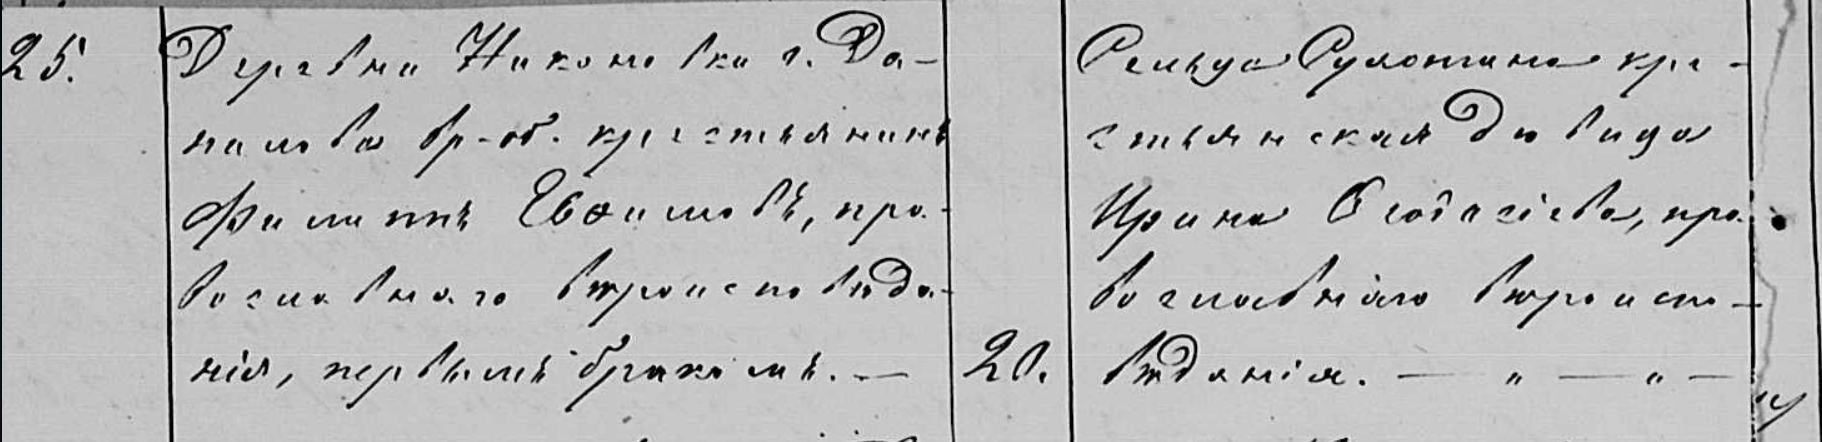 25.
Деревни Никоновки г. Да-
нилова вр-об. крестьянинъ
Филиппъ Евѳимовъ, пра-
вославнаго вѣроисповѣда-
нія, первымъ бракомъ. —
20.
Сельца кре-
стьянская дѣвица
Ирина Ѳеодосіева, пра-
вославнаго вѣроиспо-
вѣданія. — " — " —